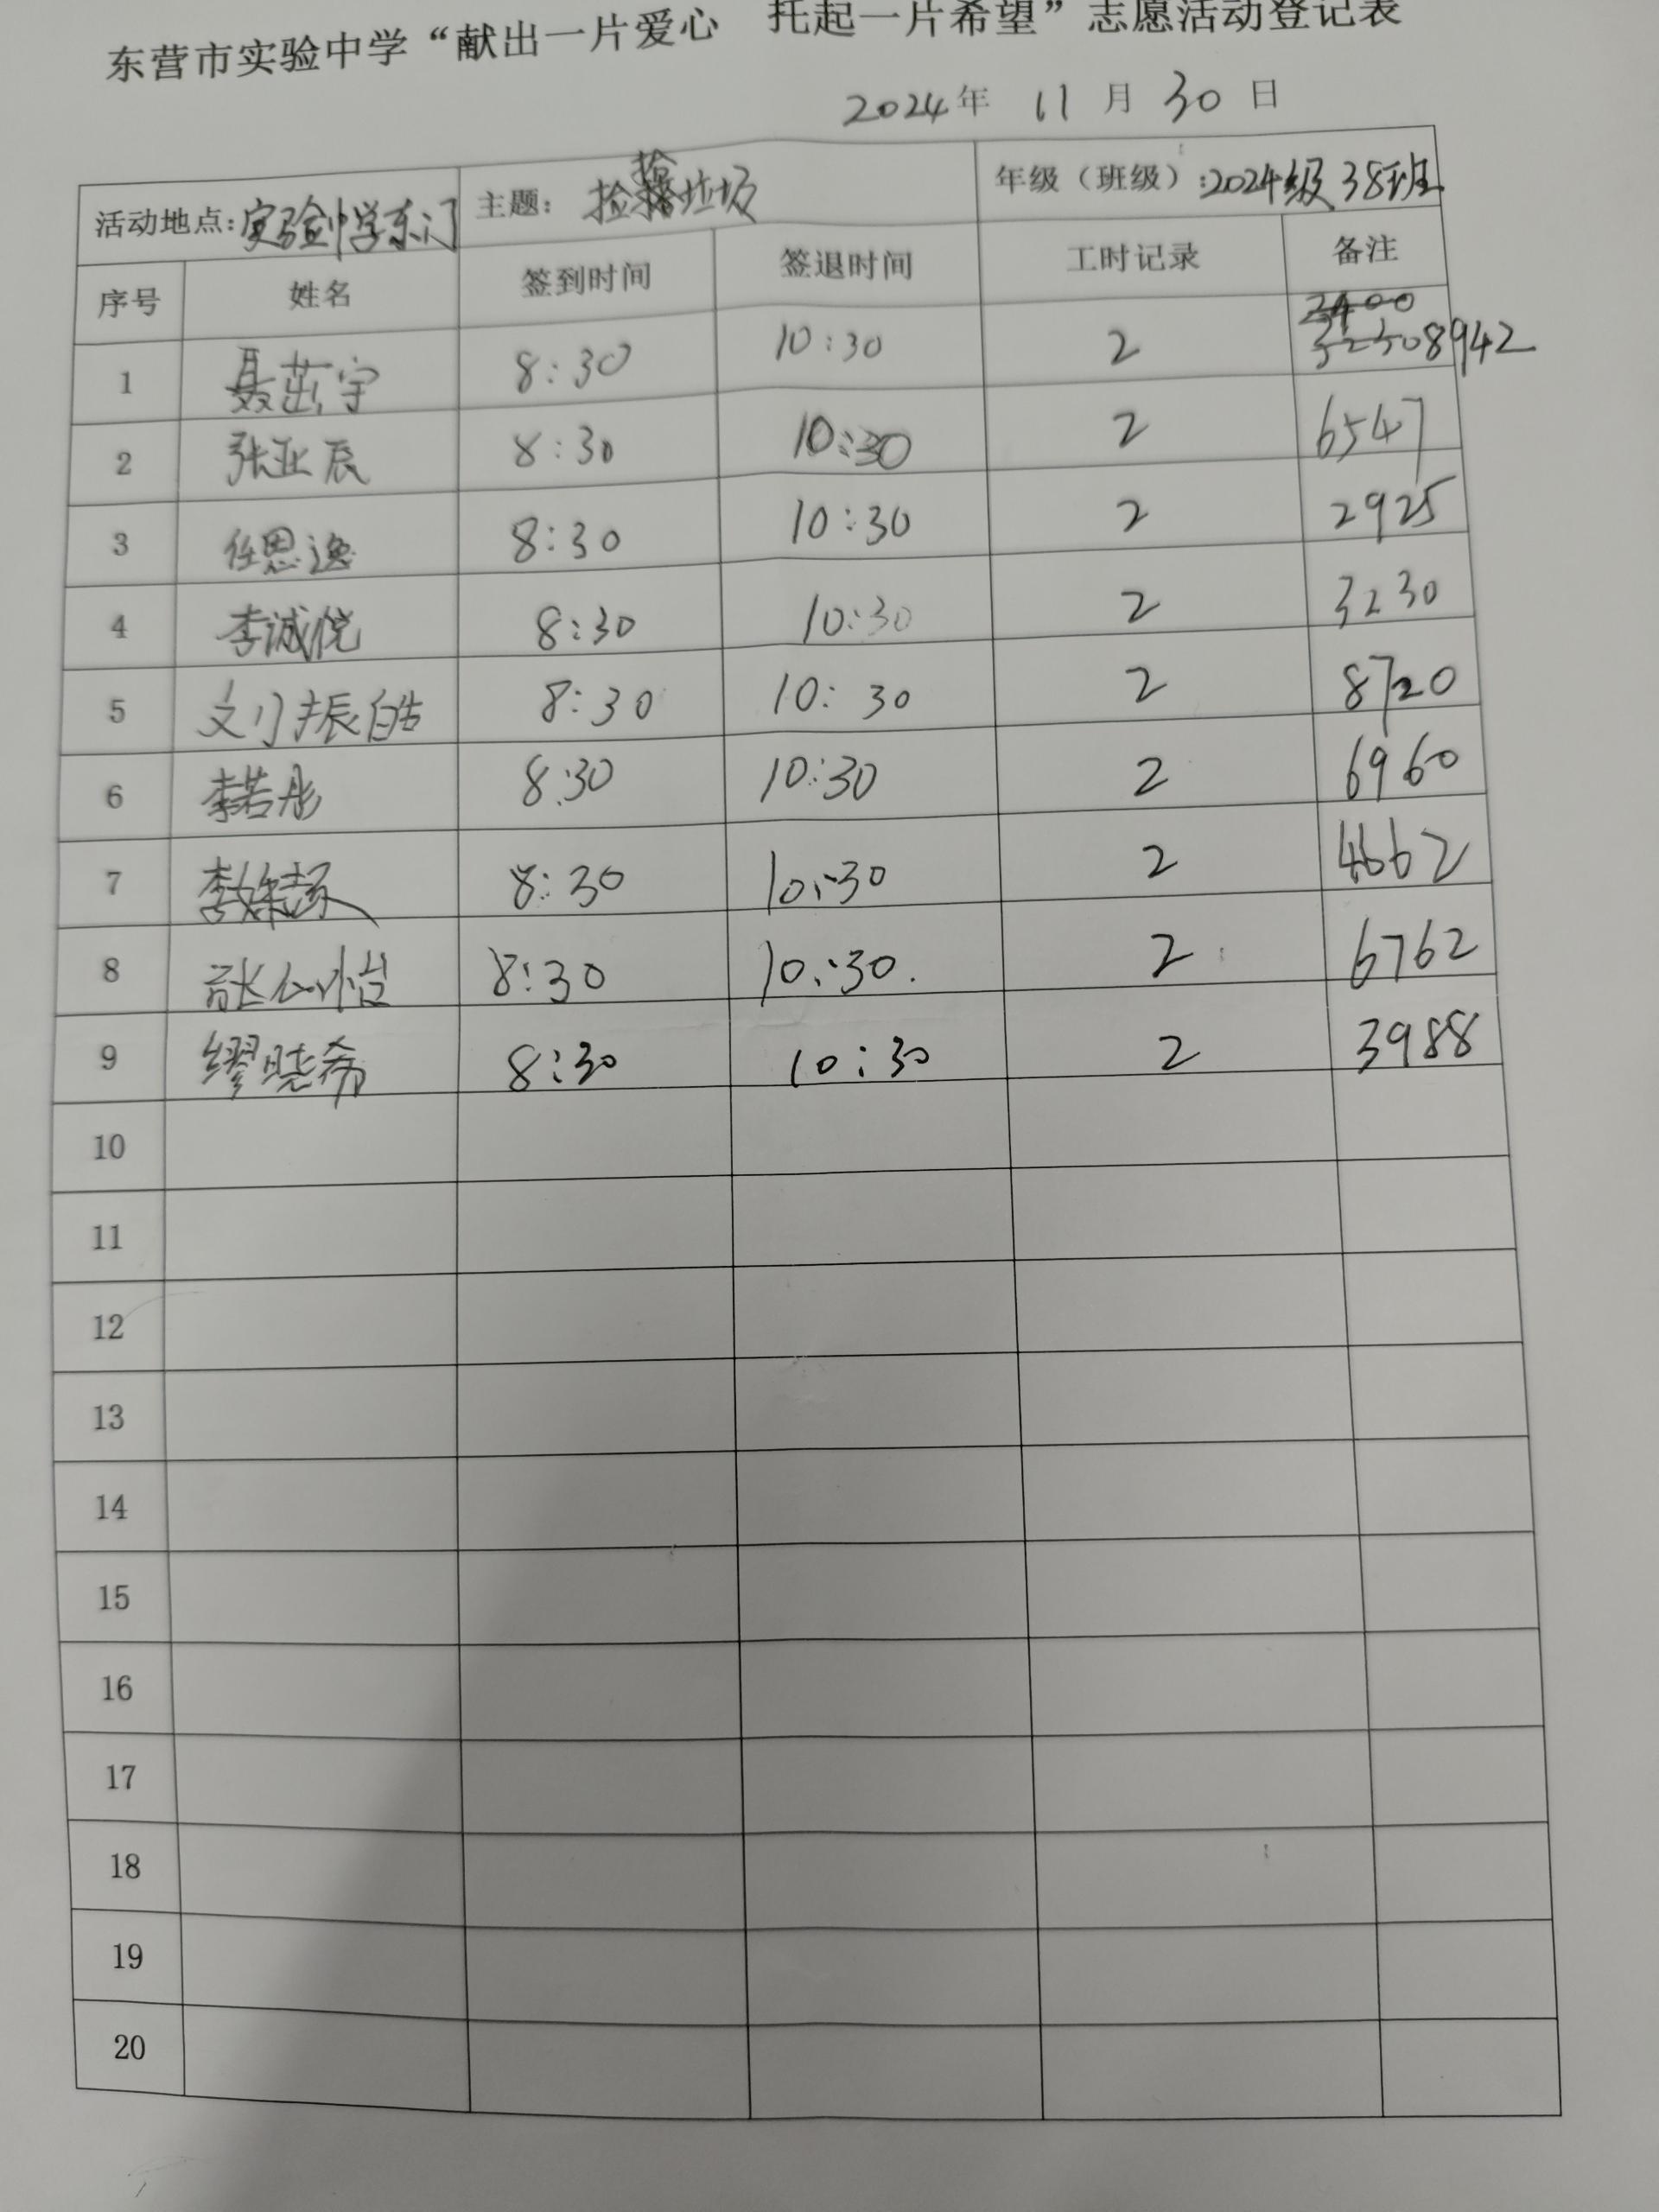 东营市实验中学“献出一片爱心 托起一片希望”志愿活动登记表
2024年 11 月 30 日
活动地点:实验中学东门 主题: 捡垃圾 年级（班级）:2024级38班
序号 姓名 签到时间 签退时间 工时记录 备注
1 聂茁宇 8:30 10:30 2 8942
2 张亚辰 8:30 10:30 2 6547
3 任恩逸 8:30 10:30 2 2925
4 李诚悦 8:30 10:30 2 3230
5 刘振皓 8:30 10:30 2 8720
6 李若彤 8:30 10:30 2 6960
7 李 8:30 10:30 2 4662
8 张心怡 8:30 10:30. 2 6762
9 缪晓希 8:30 10:30 2 3988
10
11
12
13
14
15
16
17
18
19
20